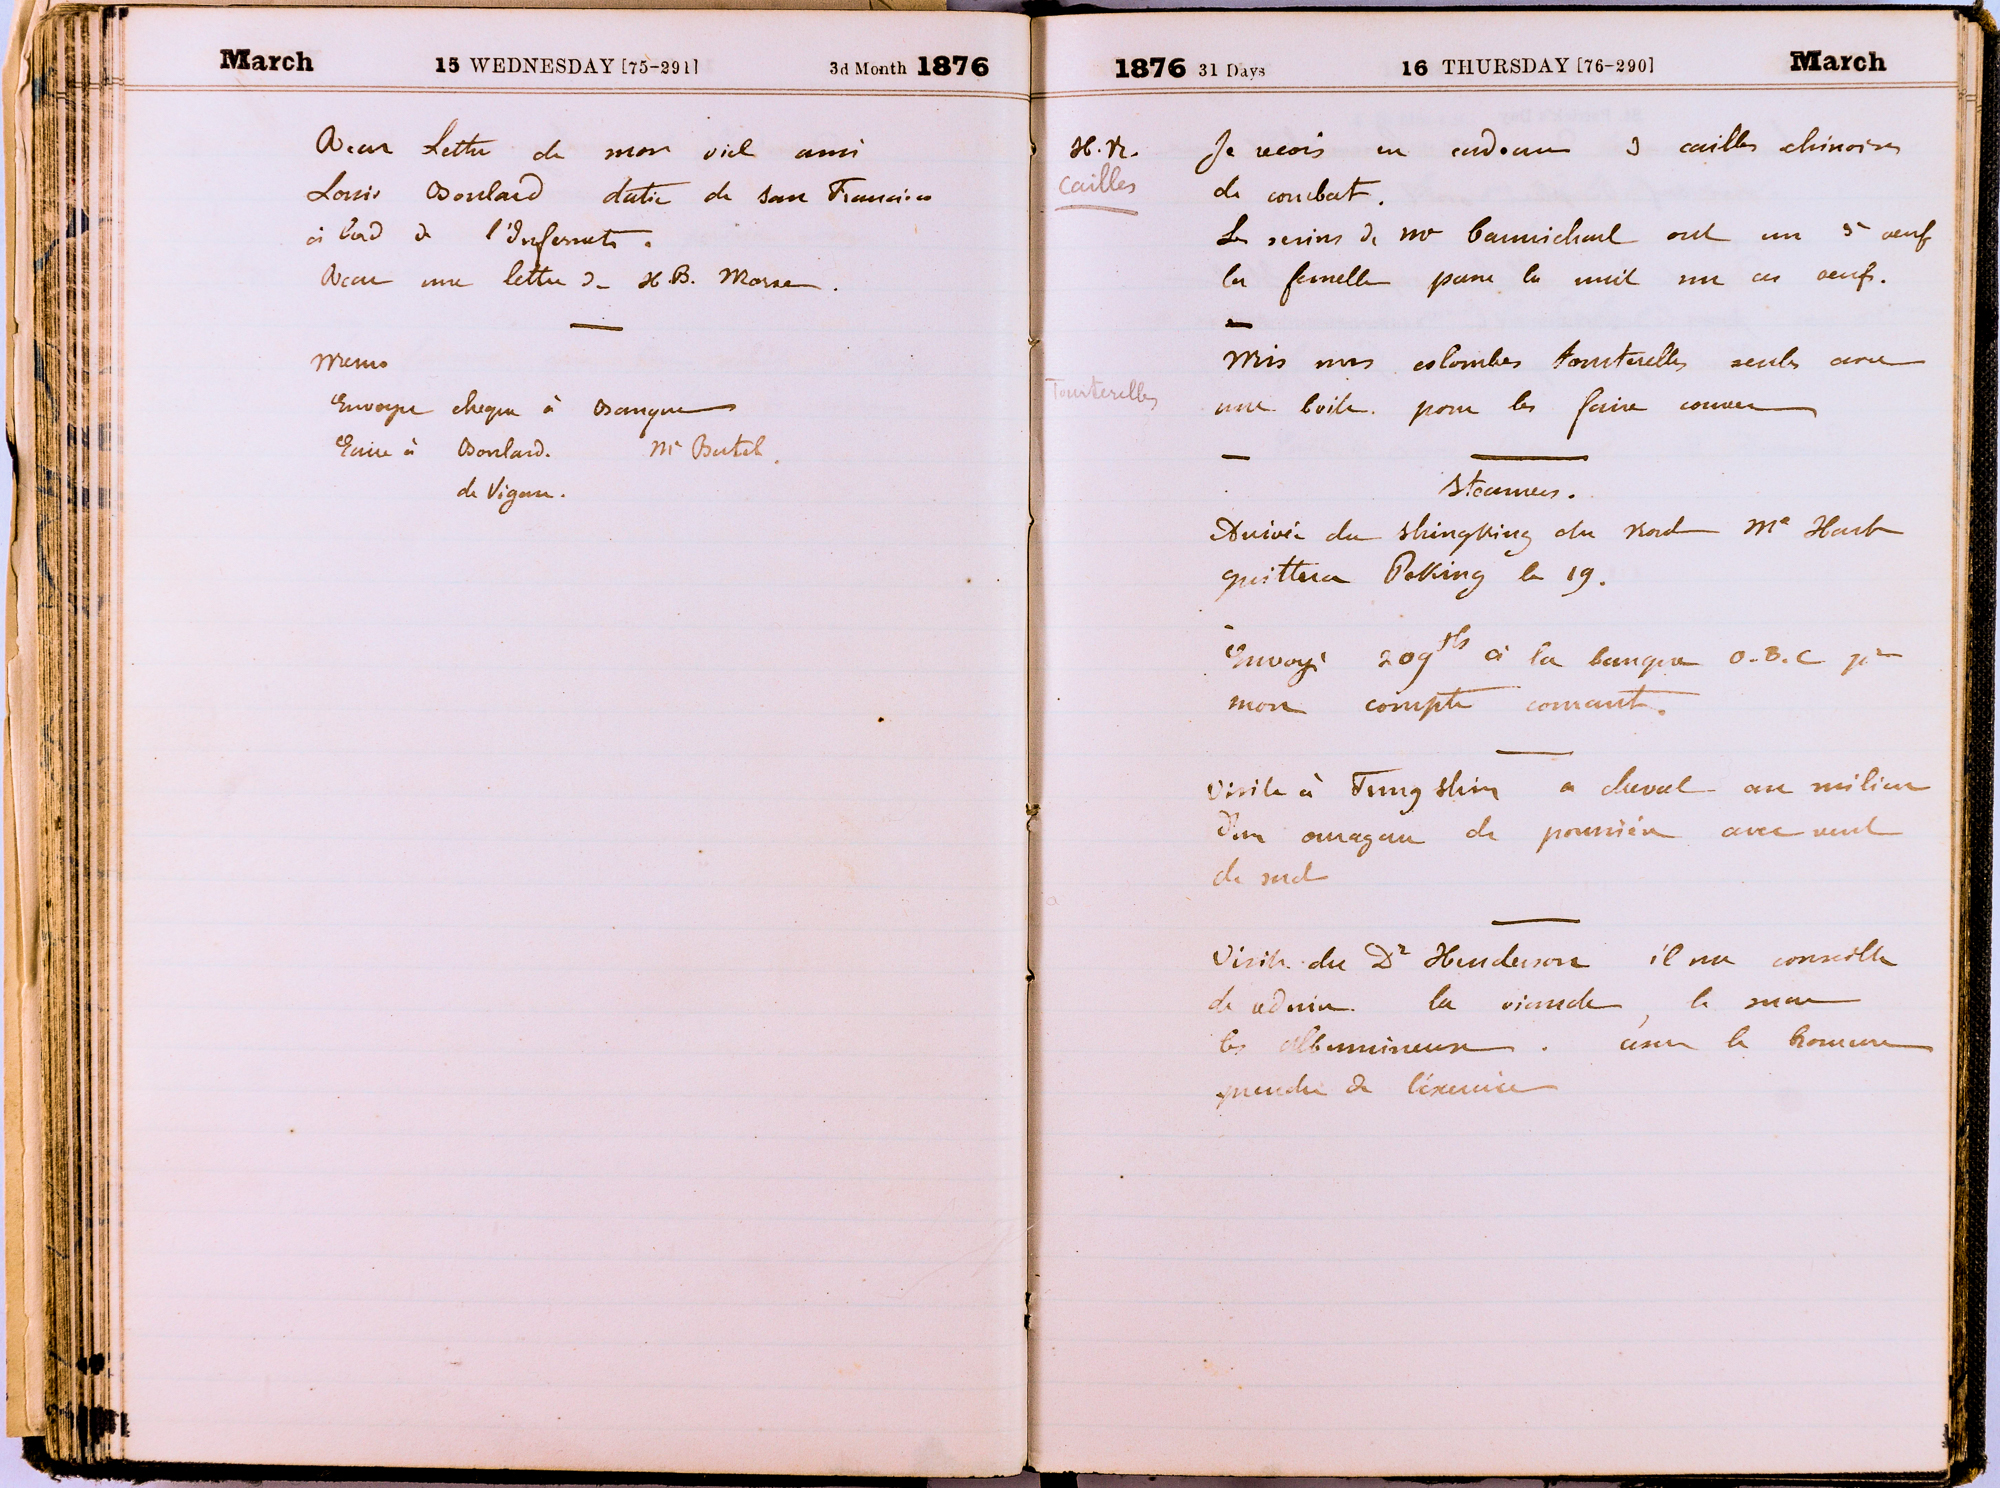 March 15 WEDNESDAY [75-291] 3d Month 1876
Recu Lettre de mon vieil ami
Louis Boulard datée de San Francisco
à bord de l'Infernet.
Recu une lettre de H.B. Morse.
Memo
Envoyer cheque à Banque
Ecrire à Boulard. Mr
de Vigan.
1876 31 Days 16 THURSDAY [76-290] March
H.N. Je recois en cadeau 3 cailles chinoises
Cailles de combat.
Les serins de Mr Carmichael ont un 5e oeuf
la femelle passe la nuit sur ces oeufs.
Mis mes colombes tourterelles seules avec
Tourterelles
une boite pour les faire couver
Steamers.
Arrivée du Shingking du Nord Mr Hart
quittera Peking le 19.
Envoyé 209 tls à la banque O.B.C pr
mon compte courant.
Visite à Fung Shun a cheval au milieu
d'un ouragan de poussière avec vent
de sud
Visite du Dr Henderson il me conseille
de réduire la viande, le sucre
les albumineux. cesser le bromure
prendre de l'éxercice